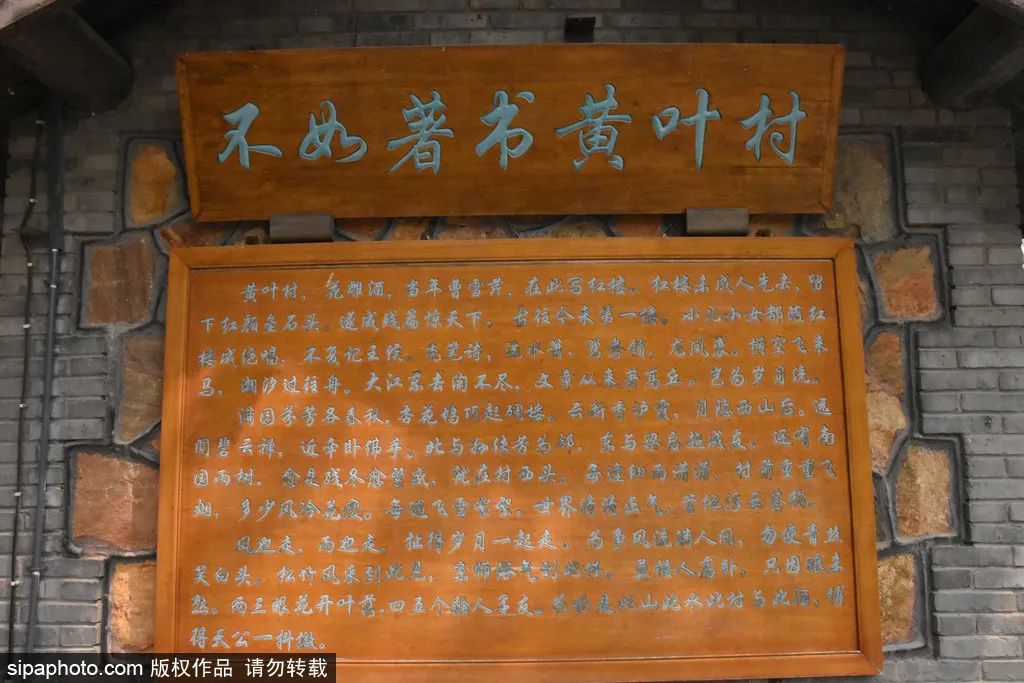 不如著书黄叶村
黄叶村，花雕酒，当年曹雪芹，在此写红楼。红楼未成人先去，留
下红颜垒石头。遂成残篇惊天下，古往今来第一楼。小儿小女都随红
楼成绝唱，不复记王侯。秃笔诗，流水箫，鸳鸯锦，龙凤裘。横空飞来
马，湖汐过往舟。大江东去淘不尽，文章从来著高丘。岂为岁月流。
满园芬芳各春秋，杏花坞顶起碉楼。云斜香炉霞，月隐西山后。远
闻碧云禅，近牵卧佛手。北与孙传芳为邻，东与梁启超成友，还有南
国雨树，愈是残冬愈繁盛，就在村西头。每逢细雨潇潇，村前重重飞
烟，多少风冷花瘦。每逢飞雪紫紫，世界
风也走，雨也走，扯得岁月一起走。为事风流满人间，勿使青丝
笑白头。松竹风采到此见，京师俗气到此休。莫怪人高卧，只因眼未
愁。两三眼花开叶落，四五个骚人墨友。为的是此山此水此村与此酒，博
得天公一抖擞。
sipaphoto.com 版权作品 请勿转载